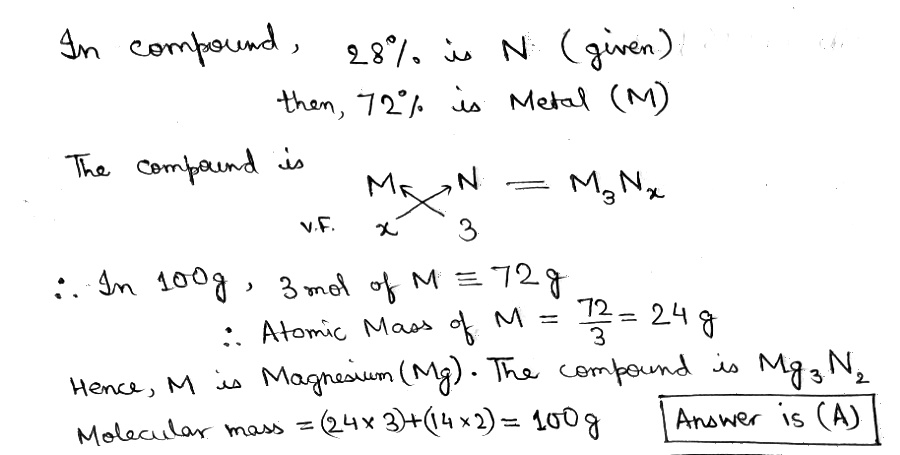 In compound, 28% is N (given)
then, 72% is Metal (M)
The compound is
M N = M₃Nₓ
V.F. x 3
∴ In 100g, 3 mol of M ≡ 72 g
∴ Atomic Mass of M = 72/3 = 24 g
Hence, M is Magnesium (Mg). The compound is Mg₃N₂
Molecular mass = (24×3)+(14×2) = 100g Answer is (A)